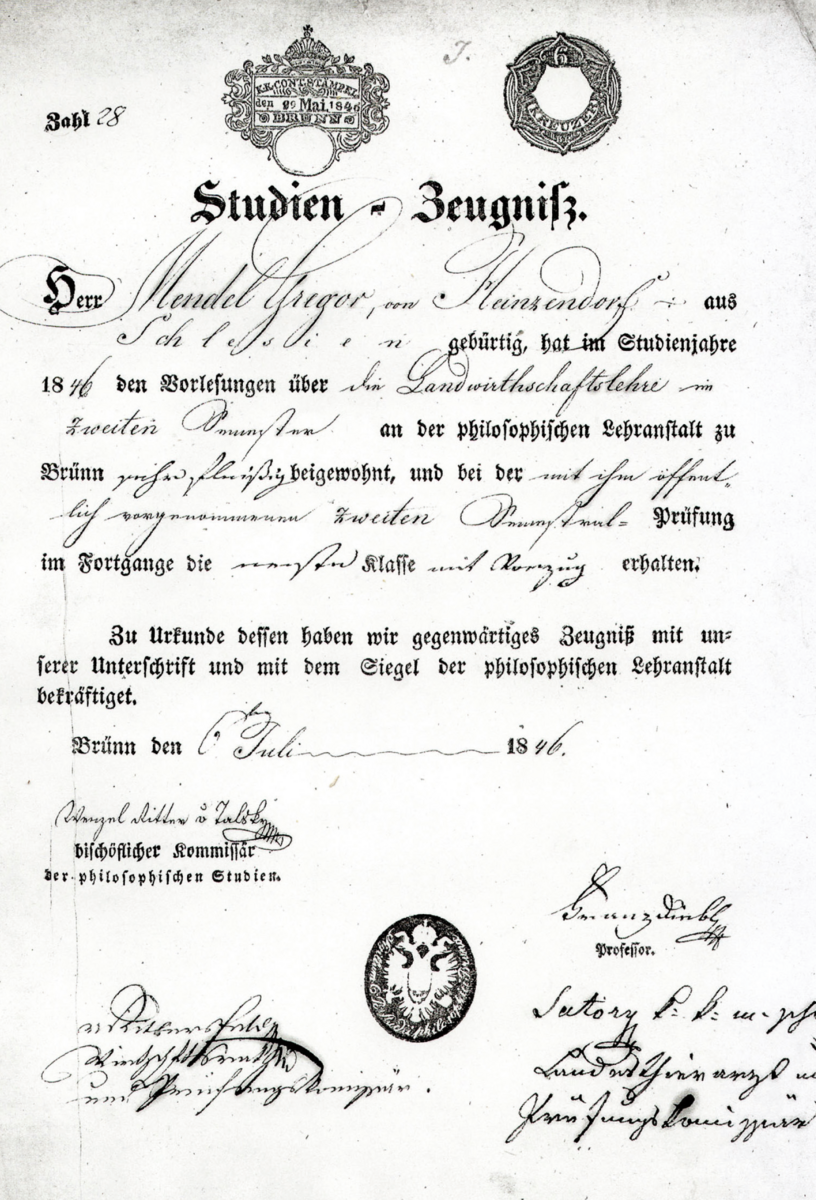 K.K. CONT. STÄMPEL
den 29 Mai. 1846
BRÜNN
6
KREUZER
Zahl 28
Studien - Zeugniß.
Herr Mendel Gregor, von Heinzendorf aus
Schlesien gebürtig, hat im Studienjahre
1846 den Vorlesungen über die Landwirthschaftslehre im
zweiten Semester an der philosophischen Lehranstalt zu
Brünn sehr fleißig beigewohnt, und bei der mit ihm öffent-
lich vorgenommenen zweiten Semestral- Prüfung
im Fortgange die erste Klasse mit Vorzug erhalten.
Zu Urkunde dessen haben wir gegenwärtiges Zeugniß mit un-
serer Unterschrift und mit dem Siegel der philosophischen Lehranstalt
bekräftiget.
Brünn den 6 Juli 1846.
Wenzel Ritter v Talsky
bischöflicher Kommissär
der philosophischen Studien.
Franz Diebl
Professor.
und Prüfungskomissär.
Satory k: k: m-
Landesthierarzt
Prüfungskomissär